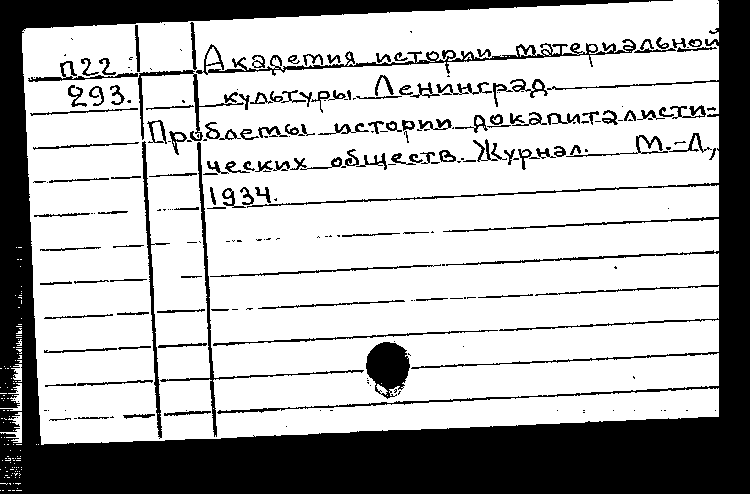 п22 Академия истории материальной
293. культуры. Ленинград.
Проблемы истории докапиталисти-
ческих обществ. Журнал. М.-Л.,
1934.